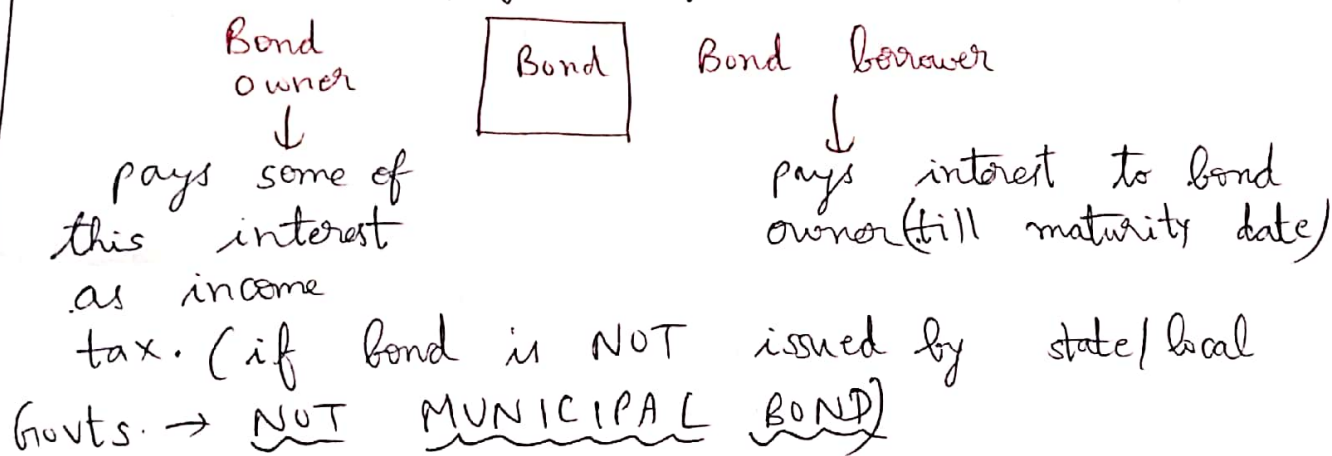 Bond
owner
Bond
Bond borrower
↓
↓
pays some of
this interest
as income
tax. (if bond is NOT issued by state/local
Govts. → NOT MUNICIPAL BOND)
pays interest to bond
owner (till maturity date)